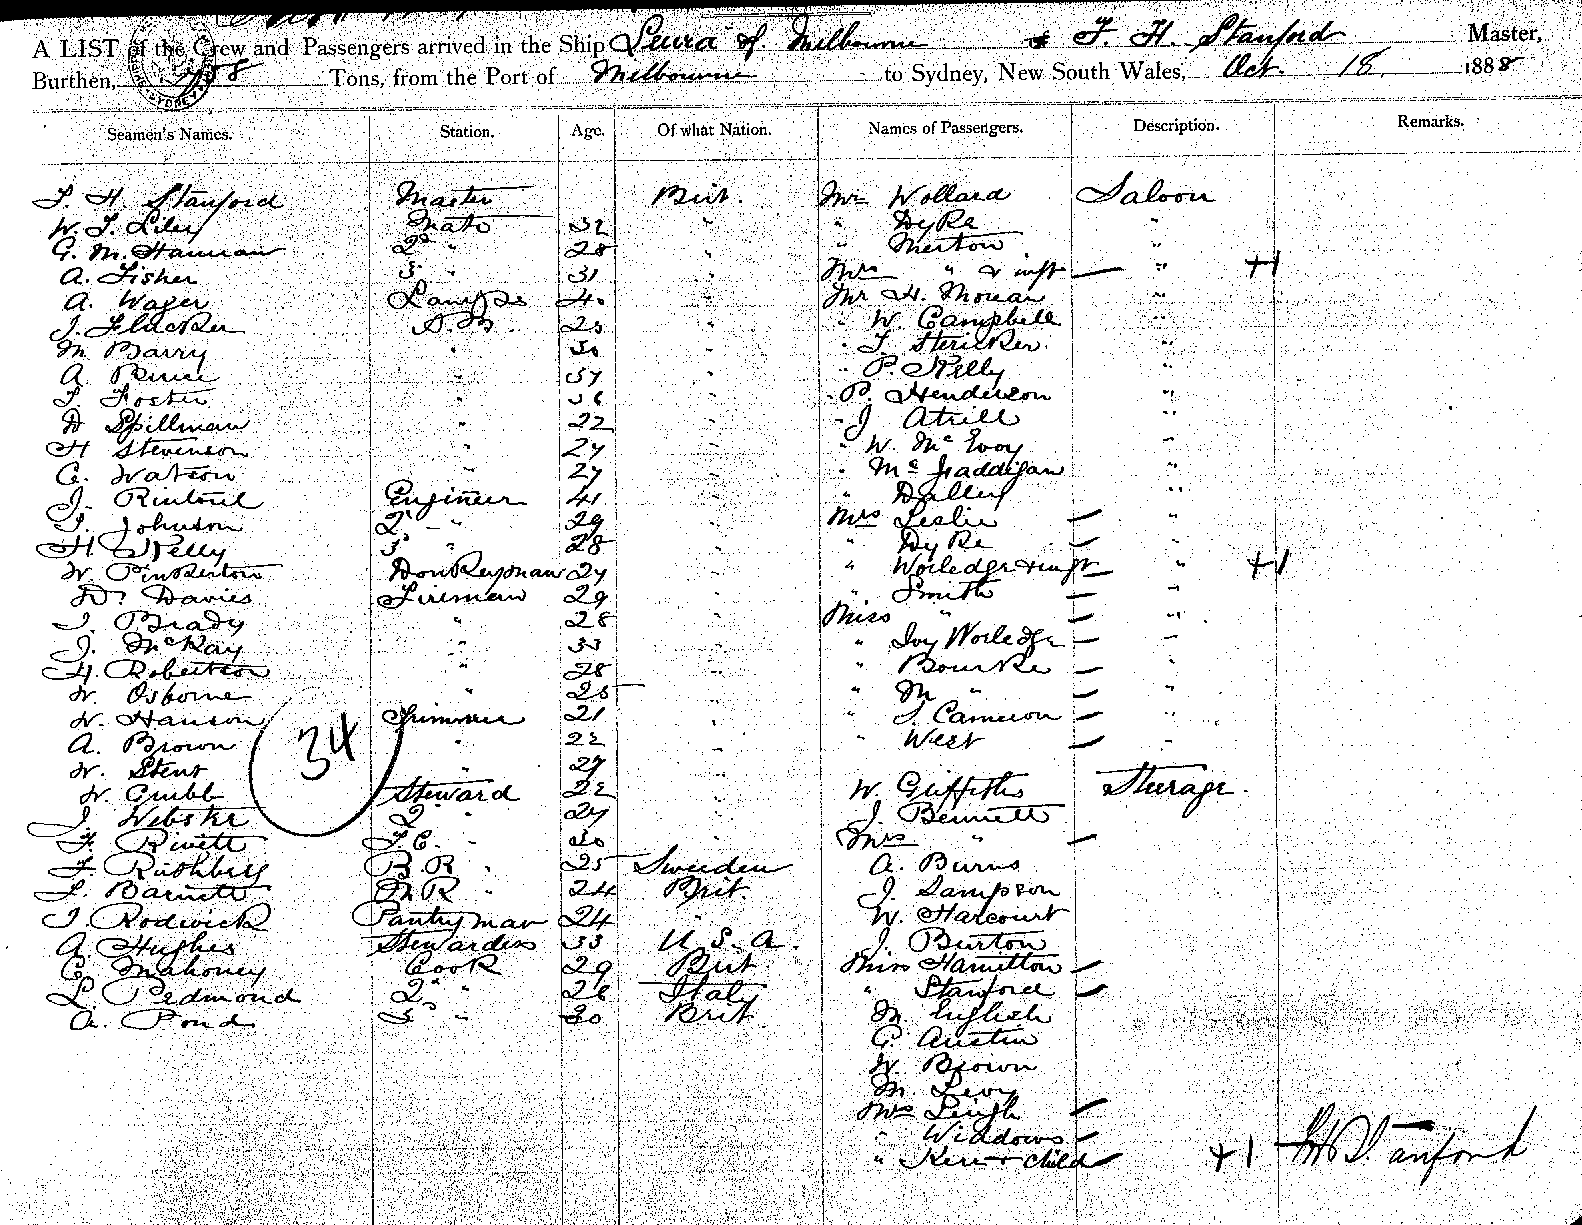 A LIST of the Crew and Passengers arrived in the Ship Leura of Melbourne F. H. Stanford Master,
Burthen, 758 Tons, from the Port of Melbourne to Sydney, New South Wales, Oct. 18 1888
Seamen's Names. Station. Age. Of what Nation. Names of Passengers. Description. Remarks.
F. H. Stanford Master Brit. Mr Wollard Saloon
W. F. Lilly Mate 32 " " DyRe "
G. M. Hannan 2d " 28 " " Merton "
A. Fisher 3 " 31 " Mrs " & inft — " +1
A. Wager Lamps 40 " Mr H. Moran "
J. Flucker A.B. 25 " " W. Campbell "
M Barry " 30 " " F Stericker "
A. " 37 " " P. Kelly "
F. Foster " 36 " " P. Henderson "
D Spillman " 22 " " J Atrill "
H Stevenson " 27 " " W. McEvoy "
C. Watson " 27 " " McGaddigan "
J. Rintoul Engineer 41 " " Dalley "
T. Johnson 2d " 29 " Mrs Leslie — "
H Kelly 3 " 28 " " Dyke — "
W. Pinkerton Donkeyman 27 " " Worledge & inft — " +1
D. Davies Fireman 29 " " Smith — "
J. Brady " 28 " Miss " — "
J. McKay " 33 " " Ivy Worledge — "
H. Robertson " 28 " " Bourke — "
W. Osborne " 25 " " M " — "
W. Hanson Trimmer 21 " " J. Cameron — "
A. Brown " 22 " " West — "
34
W. Stent " 27 "
W. Grubb Steward 22 " W Griffiths Steerage.
J. Webster 2 " 27 " J. Bennett
F. Rivett F.C. " 30 " Mrs " —
F. Ruthberg B.R. " 25 Sweden A. Burns
F. Barnett M.R " 24 Brit. J. Sampson
J. Rodwick Pantryman 24 " W. Harcourt
A. Hughes Stewardess 33 U.S.A. J. Burton
C. Mahoney Cook 29 Brit Miss Hamilton —
L. Pedmond 2d " 26 Italy " Stanford —
A. Pond 3 " 30 Brit M English
G Austin
W. Brown
M. Levy
Mrs Leigh —
" Widdows —
" Kerr & child — +1 FH Stanford